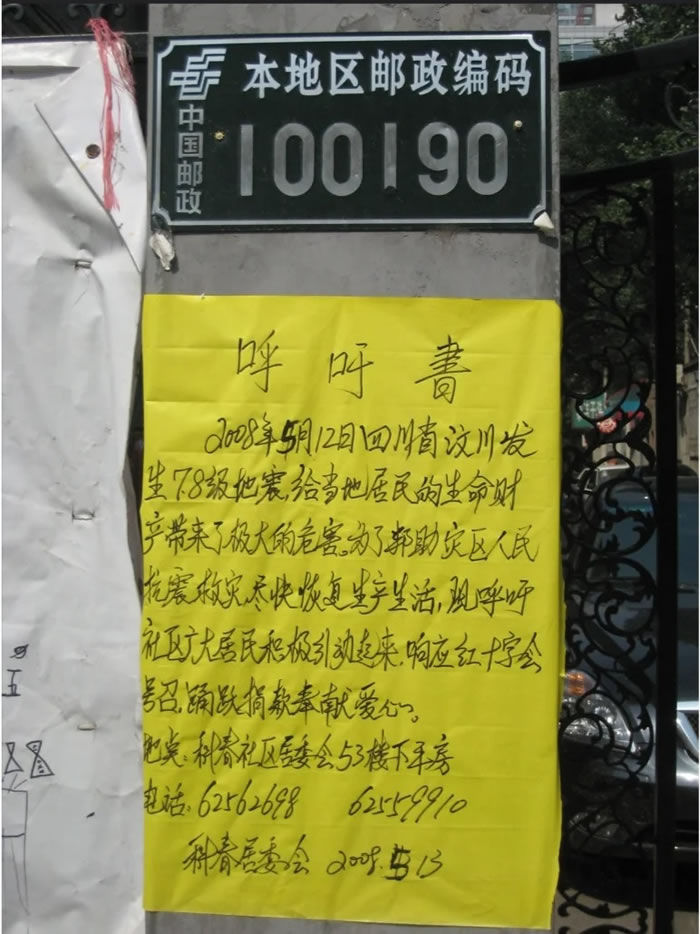 本地区邮政编码
中国邮政
100190
呼吁書
2008年5月12日四川省汶川发
生7.8级地震,给当地居民的生命财
产带来了极大的危害。为了帮助灾区人民
抗震救灾,尽快恢复生产生活,现呼吁
社区广大居民积极行动起来,响应红十字会
号召,踊跃捐款奉献爱心。
地点:科春社区居委会53楼下平房
电话:62562698 62559910
科春居委会 2008.5.13
五